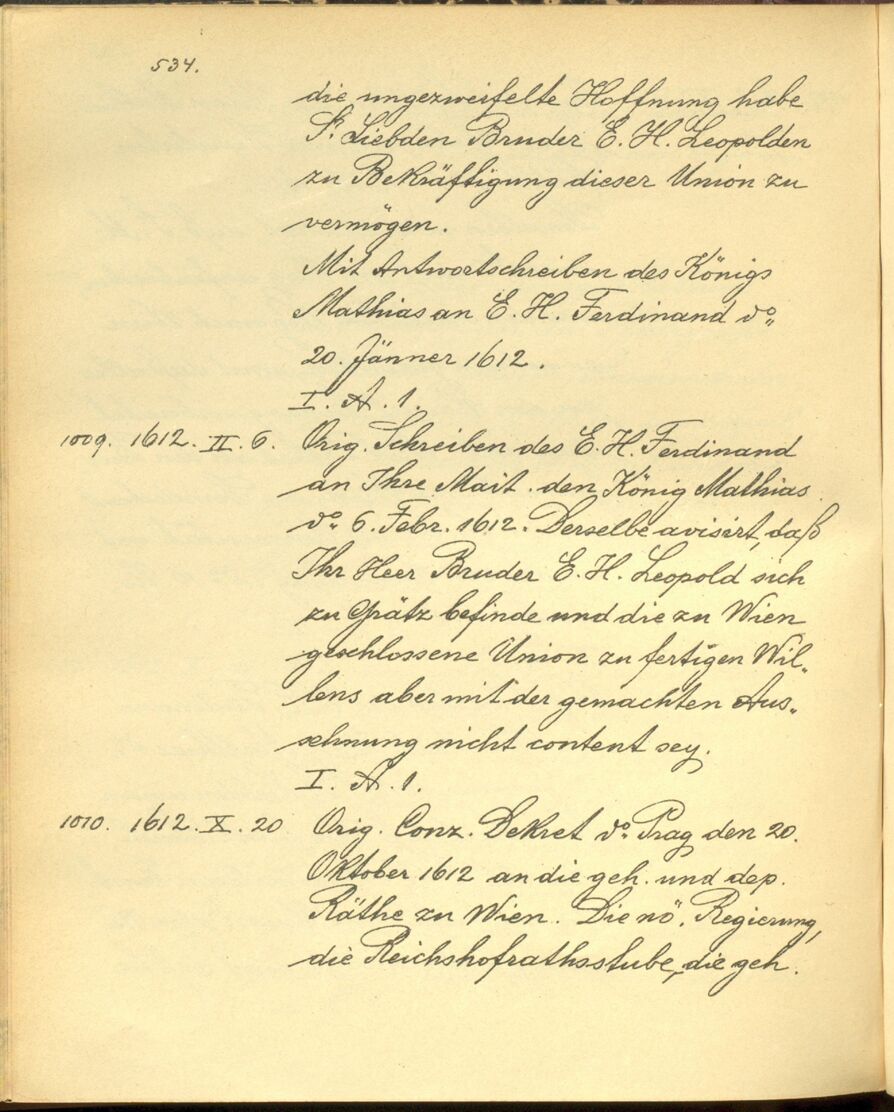 534.
die ungezweifelte Hoffnung habe
Sr. Liebden Bruder E. H. Leopolden
zu Bekräftigung dieser Union zu
vermögen.
Mit Antwortschreiben des Königs
Mathias an E. H. Ferdinand do.
20. Jänner 1612.
I. A. 1.
1009. 1612. II. 6. Orig. Schreiben des E. H. Ferdinand
an Ihre Mait. den König Mathias
do. 6. Febr. 1612. Derselbe avisirt, daß
Ihr Herr Bruder E. H. Leopold sich
zu Grätz befinde und die zu Wien
geschlossene Union zu fertigen Wil„
lens aber mit der gemachten Aus„
sehnung nicht content sey.
I. A. 1.
1010. 1612. X. 20 Orig. Conz. Dekret do. Prag den 20.
Oktober 1612 an die geh. und dep.
Räthe zu Wien. Die nö. Regierung,
die Reichshofrathsstube, die geh.